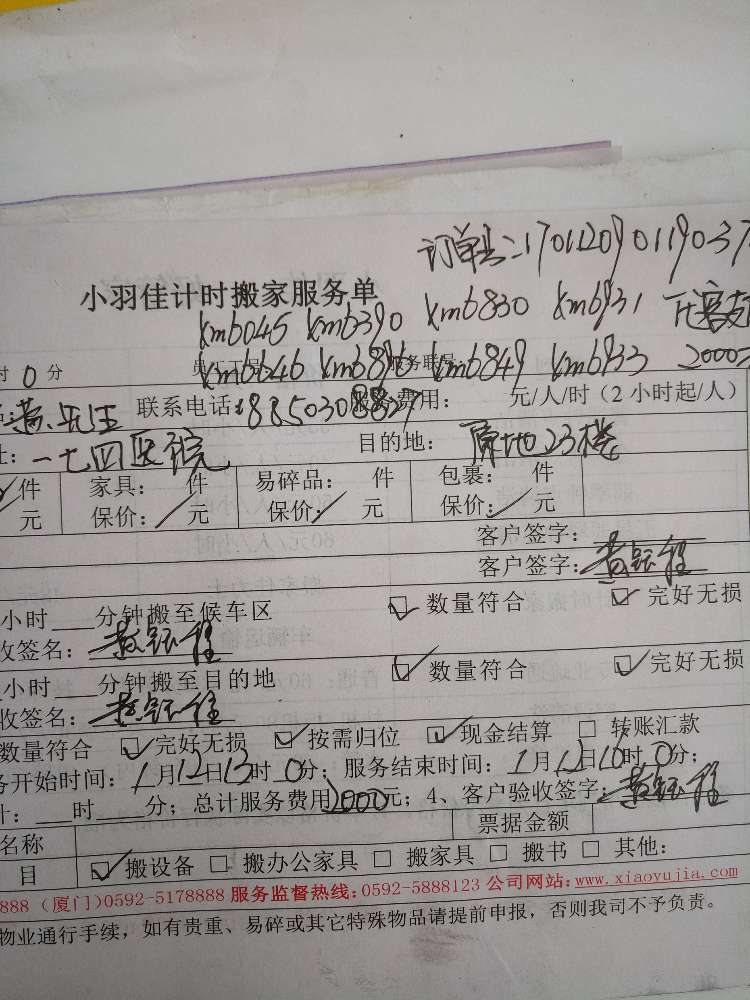 订单号:17011209011903
小羽佳计时搬家服务单
km6045 km6390 km6830 km6931
km6646 km6849 km6933 2000
时 0 分
先生 联系电话:18850308837 服务费用: 元/人/时(2 小时起/人)
址: 一七四医院 目的地: 原地23楼
件 家具: 件 易碎品: 件 包裹: 件
元 保价: / 元 保价: / 元 保价: / 元
客户签字:
客户签字:
小时___分钟搬至候车区 ☑ 数量符合 ☑ 完好无损
收签名:
小时___分钟搬至目的地 ☑ 数量符合 ☑ 完好无损
收签名:
数量符合 ☑ 完好无损 ☑ 按需归位 ☑ 现金结算 □ 转账汇款
务开始时间: 1月12日13时0分; 服务结束时间: 1月12日10时0分;
计: ___时___分; 总计服务费用2000元; 4、客户验收签字:
名称 票据金额
目 ☑ 搬设备 □ 搬办公家具 □ 搬家具 □ 搬书 □ 其他:
888 (厦门)0592-5178888 服务监督热线:0592-5888123 公司网站:www.xiaoyujia.com
物业通行手续,如有贵重、易碎或其它特殊物品请提前申报,否则我司不予负责。